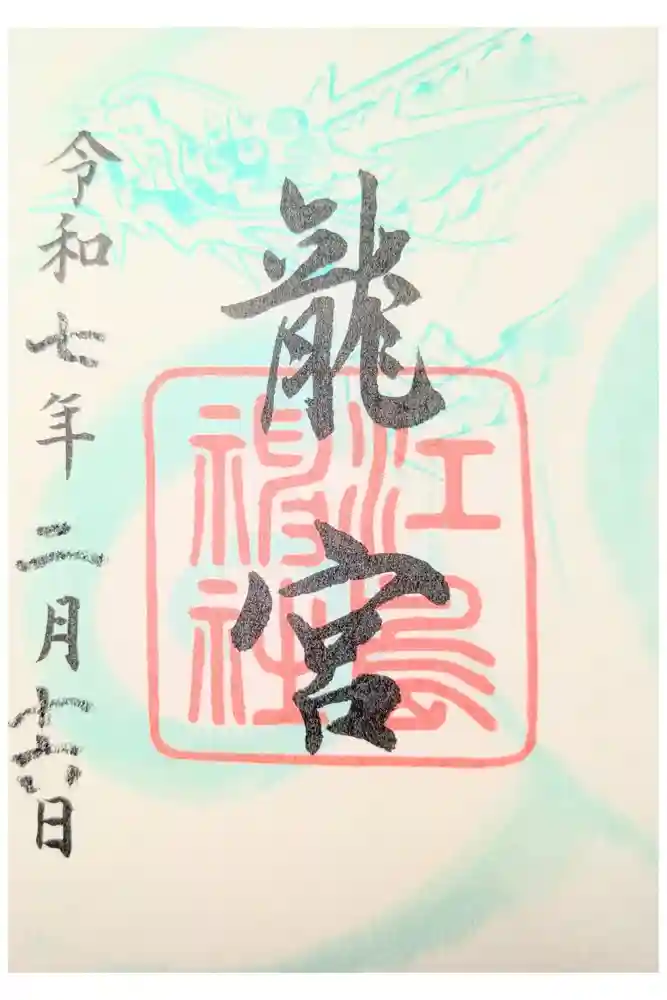 龍宮
江島
神社
令和七年二月十六日